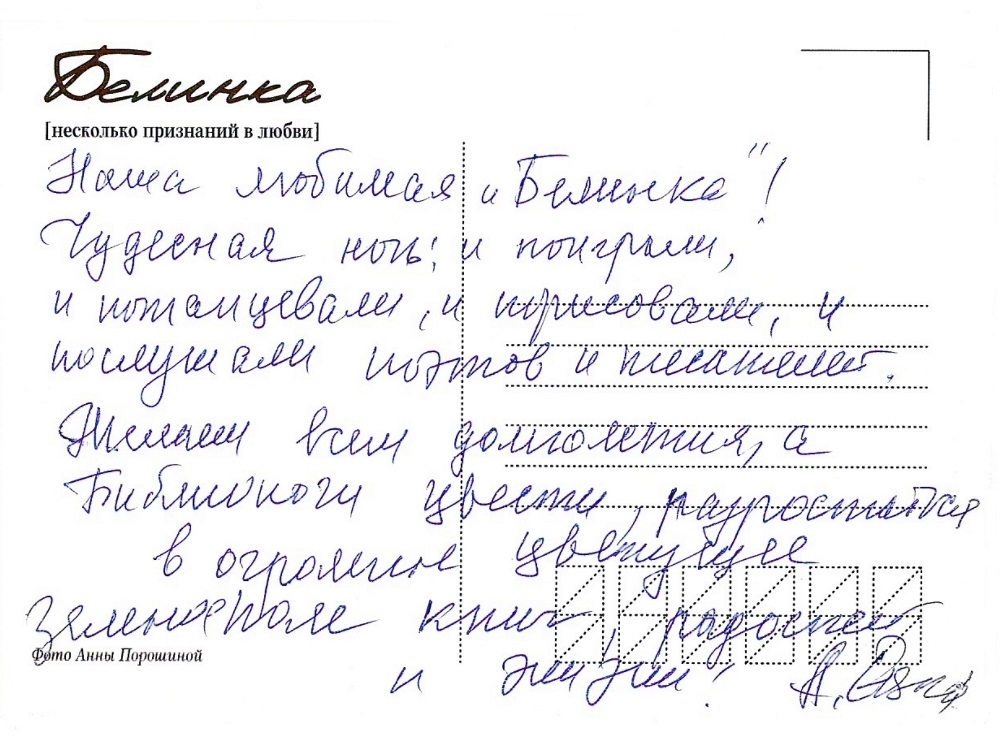 Белинка
[несколько признаний в любви]
Наша любимая „Белинка"!
Чудесная ночь: и поиграли,
и потанцевали, и порисовали, и
послушали поэтов и писателей.
Желаем всем долголетия, а
Библиотеки цвести, разростаться
в огромное цветущее
Зеленое поле книг, радостей
Фото Анны Порошиной
и жизни! А.